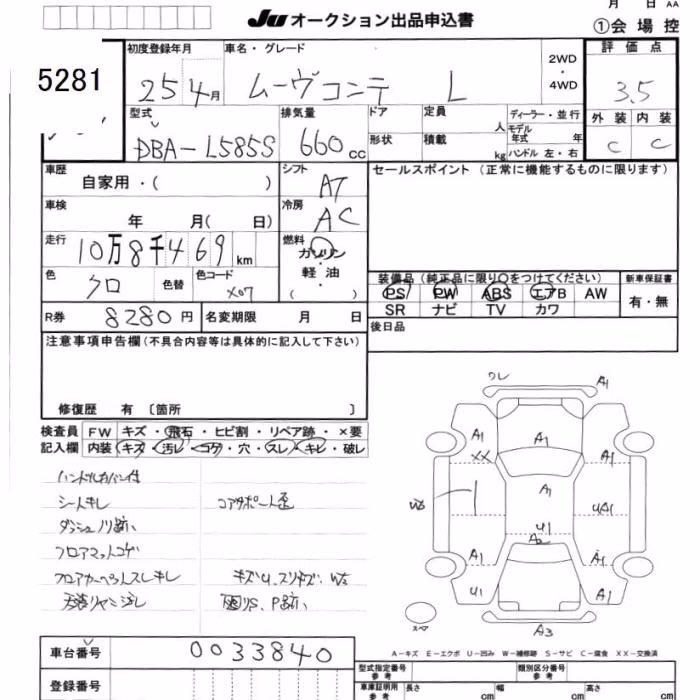 月 日 AA
JU オークション出品申込書 ①会場控
5281
初度登録年月 車名・グレード 2WD・4WD 評価点
25 4月 ムーヴコンテ L 3.5
型式 排気量 ドア 定員 人 ディーラー・並行 外装 内装
DBA-L585S 660cc 形状 積載 kg モデル年式 年 C C
ハンドル 左・右
車歴 シフト セールスポイント (正常に機能するものに限ります)
自家用・( ) AT
車検 冷房
年 月( 日) AC
走行 燃料
10万8千469km ガソリン・軽油 ( )
色 色替 色コード 装備品(純正品に限り○をつけてください) 新車保証書
クロ X07 PS PW ABS エアB AW 有・無
SR ナビ TV カワ
R券 8280円 名変期限 月 日 後日品
注意事項申告欄(不具合内容等は具体的に記入して下さい)
修復歴 有 〔箇所 〕
検査員 FW キズ・飛石・ヒビ割・リペア跡・×要
記入欄 内装 キズ・汚レ・コゲ・穴・スレ・キレ・破レ
ハンドルカバー付
シートキレ コアサポート歪
ダッシュノリ跡
フロアマットコゲ
フロアカーペットスレキレ キズU、スリキズ、WS
天張リヤシミ汚レ 雨ジS、P跡
ワレ A1
A1 A1 A1
XX
A1
WS U1 UA1
A2
A1 A1
U1 A1
スペア A3
車台番号 0033840
A-キズ E-エクボ U-凹み W-補修跡 S-サビ C-腐食 XX-交換済
型式指定番号 参考 類別区分番号 参考
登録番号 車庫証明用 参考 長さ cm 幅 cm 高さ cm